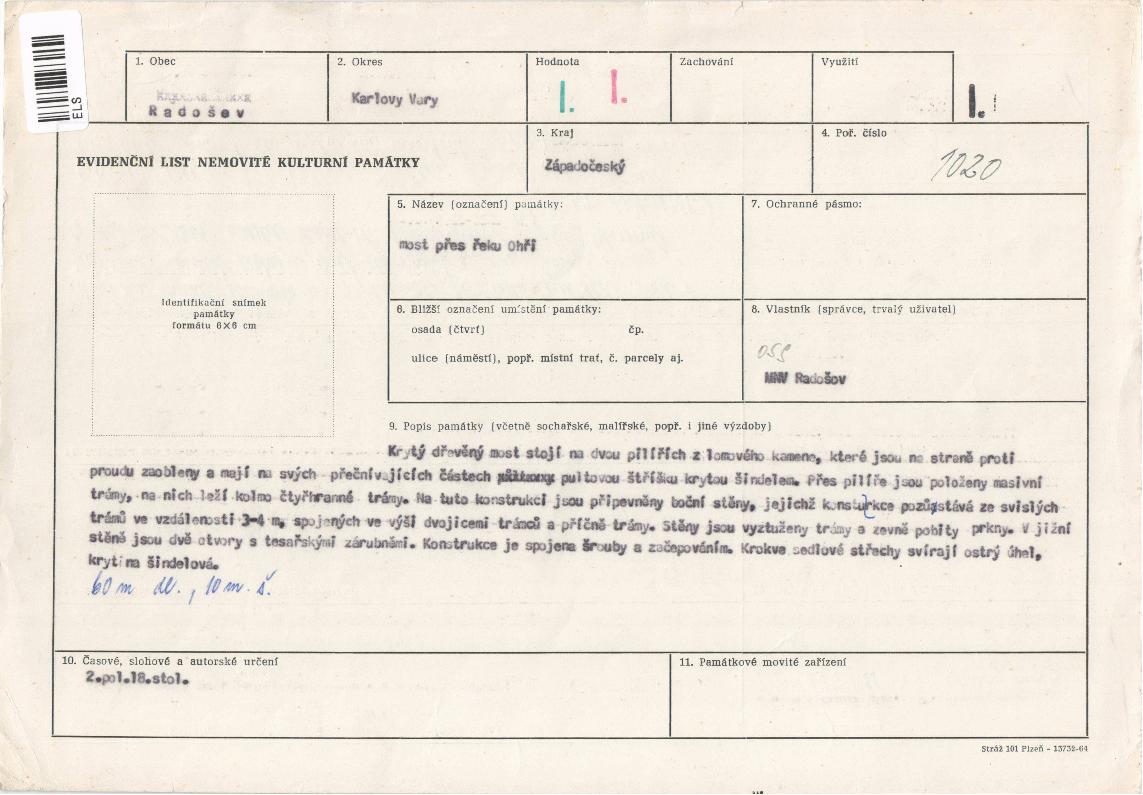 ELS
1. Obec
Radošev
2. Okres
Karlovy Vary
Hodnota
I.
I.
Zachování
Využití
I.
EVIDENČNÍ LIST NEMOVITÉ KULTURNÍ PAMÁTKY
3. Kraj
Západočeský
4. Poř. číslo
1020
Identifikační snímek
památky
formátu 6×6 cm
5. Název (označení) památky:
most přes řeku Ohři
7. Ochranné pásmo:
6. Bližší označení umístění památky:
osada (čtvrť) čp.
ulice (náměstí), popř. místní trať, č. parcely aj.
8. Vlastník (správce, trvalý uživatel)
MNV Radošov
9. Popis památky (včetně sochařské, malířské, popř. i jiné výzdoby)
Krytý dřevěný most stojí na dvou pilířích z lomového kamene, které jsou na straně proti
proudu zaobleny a mají na svých přečnívajících částech pultovou štříšku krytou šindelem. Přes pilíře jsou položeny masivní
trámy, na nich leží kolmo čtyřhranné trámy. Na tuto konstrukci jsou připevněny boční stěny, jejichž konsturkce pozůstává ze svislých
trámů ve vzdálenosti 3-4 m, spojených ve výši dvojicemi trámců a příčně trámy. Stěny jsou vyztuženy trámy a zevně pobity prkny. V jižní
stěně jsou dvě otvory s tesařskými zárubněmi. Konstrukce je spojena šrouby a začepováním. Krokve sedlové střechy svírají ostrý úhel,
krytina šindelová.
60 m dl., 10 m. š.
10. Časové, slohové a autorské určení
2.pol.18.stol.
11. Památkové movité zařízení
Stráž 101 Plzeň - 13732-64